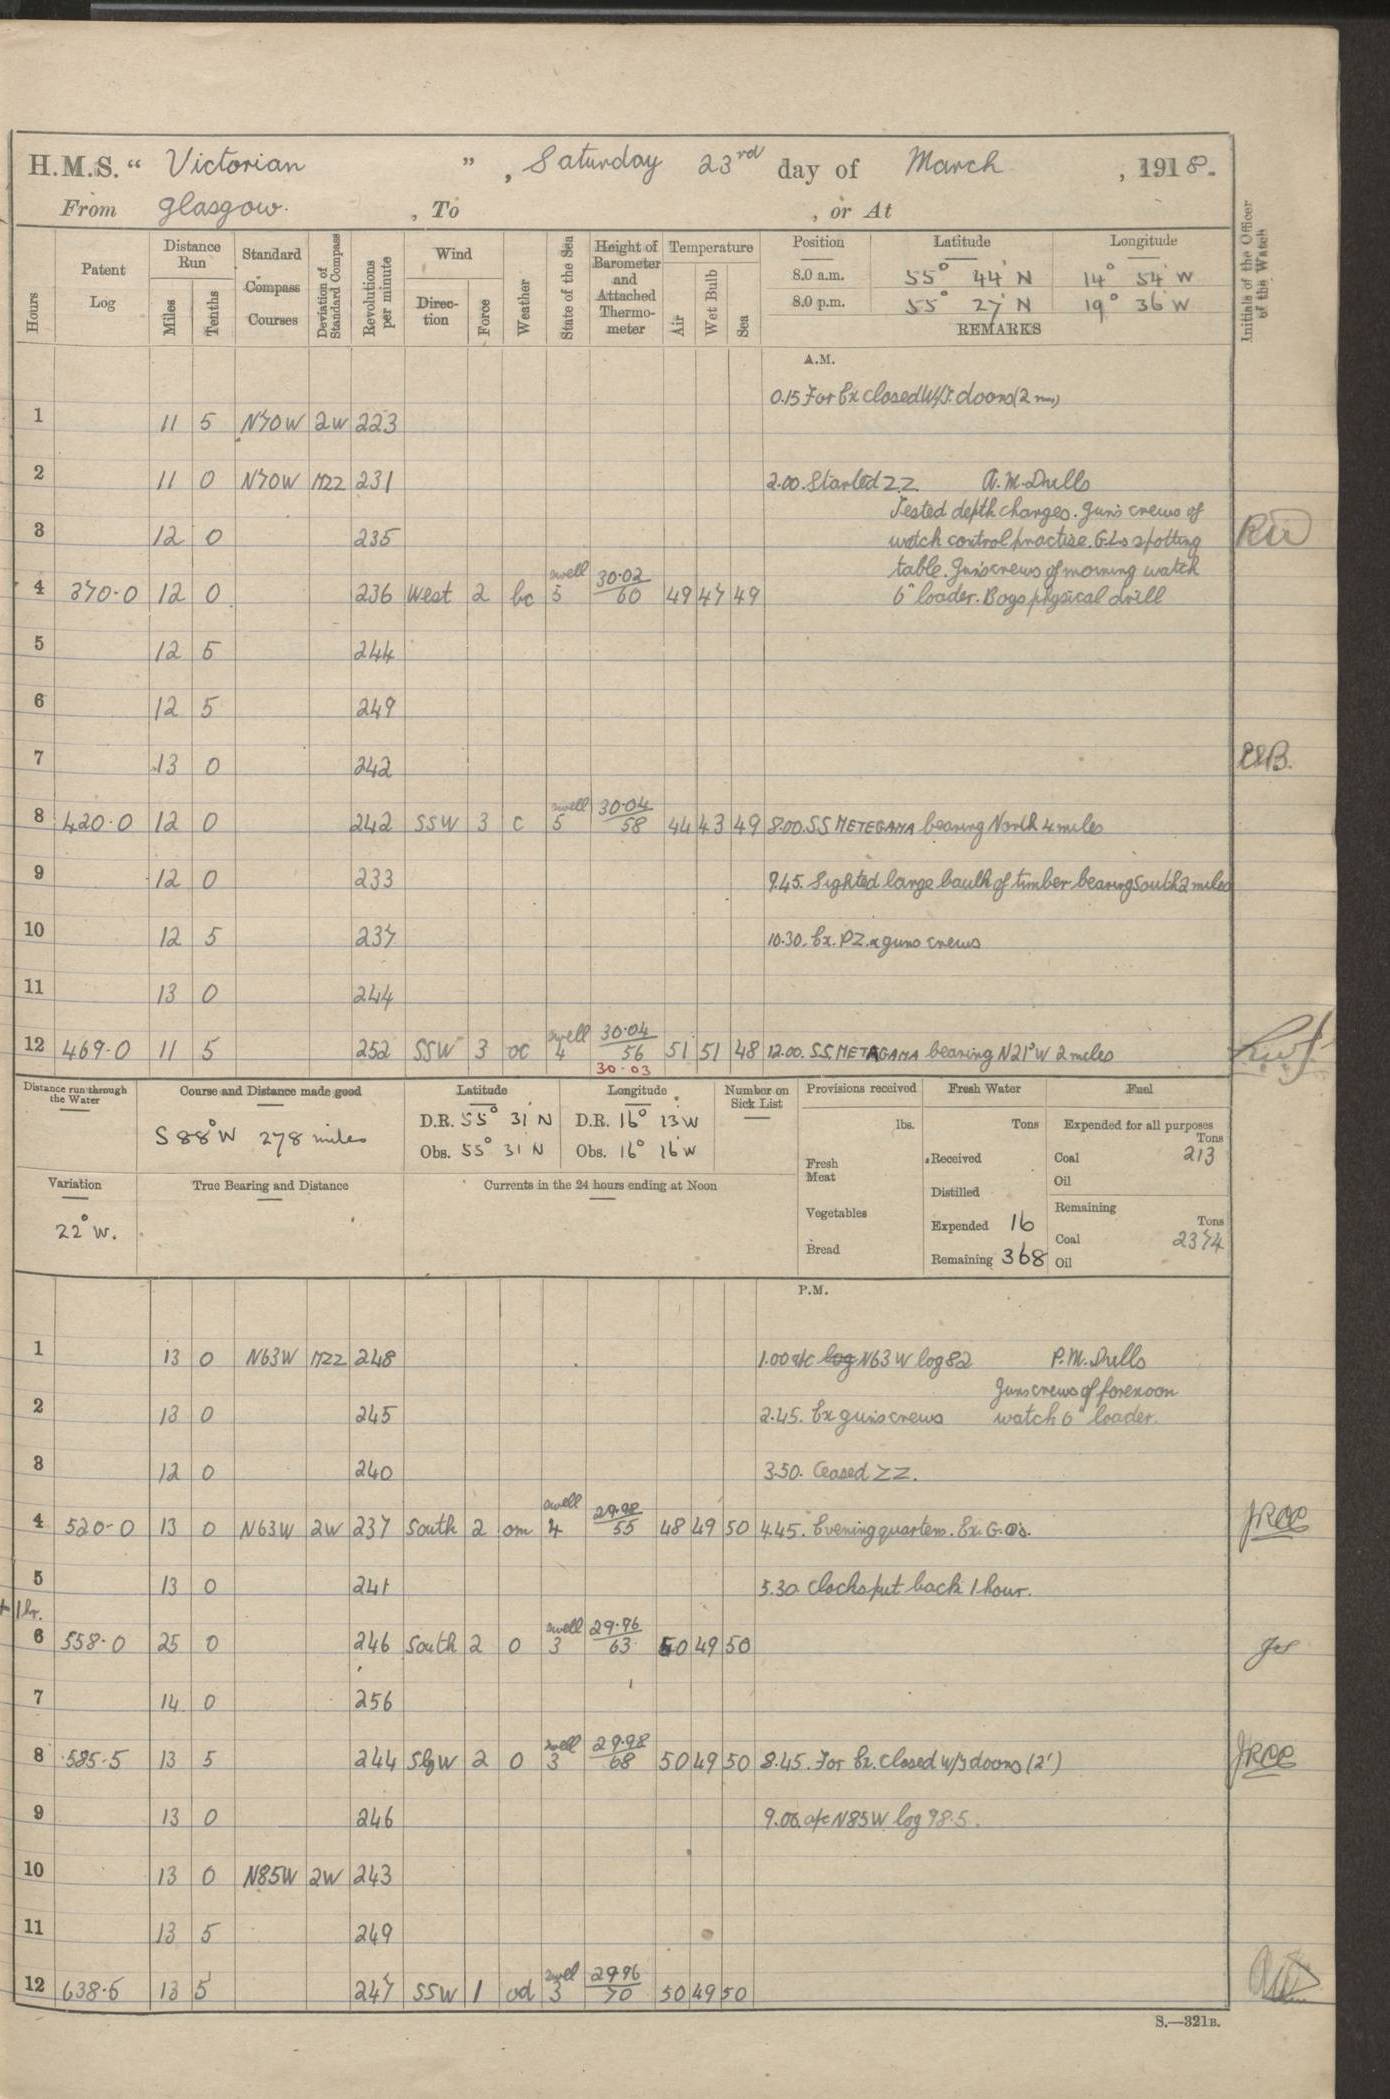 H.M.S. " Victorian " , Saturday 23rd day of March , 1918.
From Glasgow. , To , or At
Initials of the Officer of the Watch
Hours
Patent Log
Distance Run
Miles
Tenths
Standard Compass Courses
Deviation of Standard Compass
Revolutions per minute
Wind
Direction
Force
Weather
State of the Sea
Height of Barometer and Attached Thermometer
Temperature
Air
Wet Bulb
Sea
Position Latitude Longitude
8.0 a.m. 55° 44' N 14° 54' W
8.0 p.m. 55° 27' N 19° 36' W
REMARKS
A.M.
0.15 For Ex closed W/T. doors (2 ms)
1 11 5 N70W 2W 223
2 11 0 N70W MZZ 231 2.00. Started ZZ. A.M. Drills
Tested depth charges. Guns crews of
3 12 0 235 watch control practise. G.Ls spotting
table. Guns crews of morning watch
4 370·0 12 0 236 West 2 bc swell 5 30·02 60 49 47 49 6" loader. Boys physical drill
5 12 5 244
6 12 5 249
7 13 0 242
8 420·0 12 0 242 SSW 3 c swell 5 30·04 58 44 43 49 8.00. S.S METEGAMA bearing North 4 miles
9 12 0 233 9.45. Sighted large baulk of timber bearing South 2 miles
10 12 5 237 10.30. Ex. PZ. x guns crews
11 13 0 244
12 469·0 11 5 252 SSW 3 oc swell 4 30·04 56 51 51 48 12.00. S.S. METAGAMA bearing N21°W 2 miles
30·03
Distance run through the Water
Course and Distance made good
S 88° W 278 miles
Latitude
D.R. 55° 31' N
Obs. 55° 31' N
Longitude
D.R. 16° 13' W
Obs. 16° 16' W
Number on Sick List
Provisions received
lbs.
Fresh Meat
Vegetables
Bread
Fresh Water
Tons
Received
Distilled
Expended 16
Remaining 368
Fuel
Expended for all purposes
Tons
Coal 213
Oil
Remaining
Tons
Coal 2374
Oil
Variation
22° W.
True Bearing and Distance
Currents in the 24 hours ending at Noon
P.M.
1 13 0 N63W MZZ 248 1.00 a/c log N63W log 82 P.M. Drills
Guns crews of forenoon
2 13 0 245 2.45. Ex guns crews watch 6" loader.
3 12 0 240 3.50. Ceased ZZ.
4 520·0 13 0 N63W 2W 237 South 2 om swell 4 29·98 55 48 49 50 4.45. Evening quarters. Ex. G.Qs. JRCC
5 13 0 241 5.30. Clocks put back 1 hour.
+ 1hr.
6 558·0 25 0 246 South 2 o swell 3 29·96 63 50 49 50
7 14 0 256
8 585·5 13 5 244 SbyW 2 o swell 3 29·98 68 50 49 50 8.45. For Ex. Closed W/T doors (2') JRCC
9 13 0 246 9.00. a/c N85W log 98·5.
10 13 0 N85W 2W 243
11 13 5 249
12 638·5 13 5 247 SSW 1 od swell 3 29·96 70 50 49 50
S.—321B.